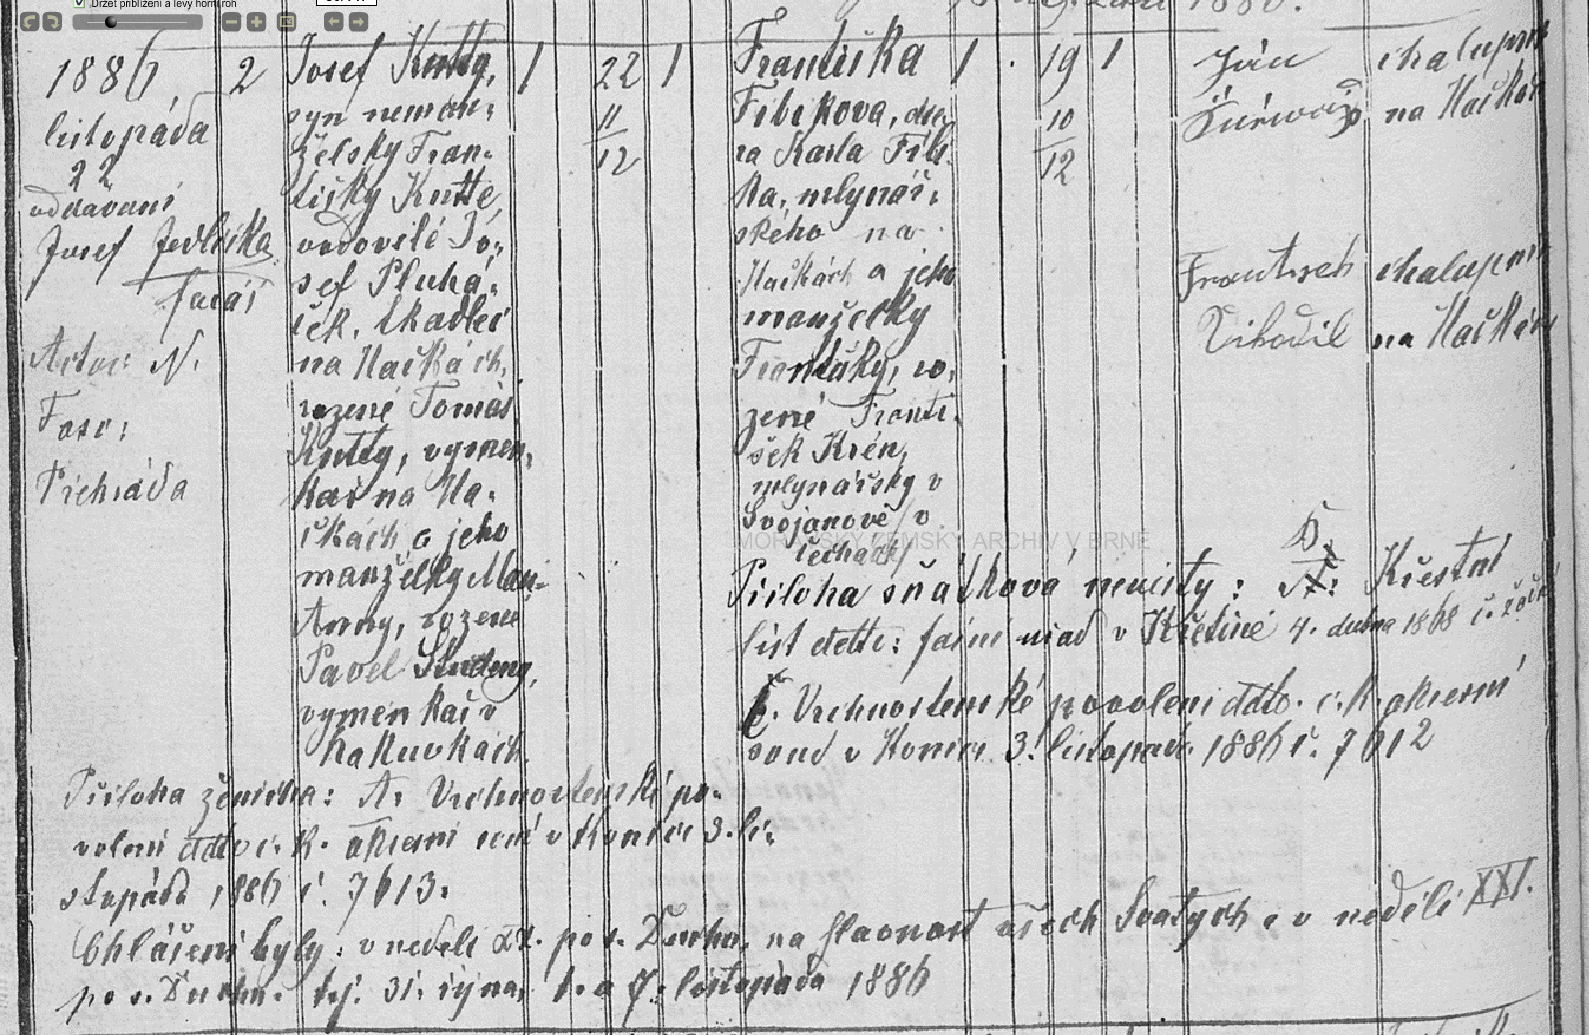 Držet přiblížení a levý horní roh
1886
listopáda
22
oddávaní
Josef Jedlička
farář
Actor: N.
Fasc:
Přehráda
2
Josef Kutty,
syn neman:
želský Fran-
tišky Kutte
ovdovělé Jo:
sef Pluhá:
ček, tkadlei
na Hačkách,
rozené Tomáš
Kutty, vymen,
kař na Ha,
čkách a jeho
manželky Mari-
Anny, rozené
Pavel Studený,
vymenkař v
Kakuvkách.
1
22
11
12
1
Františka
Fibikova, dce,
ra Karla Fibi
ka, mlynář,
ského na
Hačkách a jeho
manželky
Františky, ro,
zené Franti
šek Krén,
mlynářský v
Svojanově /v
Čechách/
1
19
10
12
1
Ján
chalupník
na Hačkách
František
chalupník
Vibodil
na Hačkách
MORAVSKÝ ZEMSKÝ ARCHIV V BRNĚ
Příloha sňátková nevěsty: B. Křestní
list detto: farní úřad v Křetíně 4. dubna 1868 č.
Č. Vrchnostenské povolení ddto. c. k. okresní
soud v Konici 3. listopadu 1886 č. 7612
Příloha ženicha: A. Vrchnostenské po-
volení ddto c. k. okresní soud v Konici 3. li:
stopádu 1886 č. 7613.
Ohlášení byly: v neděli XX. po s. Duchu, na slavnost všech Svatých a v neděli XXI.
po s. Duchu. tej. 31. října, 1. a 7. listopáda 1886